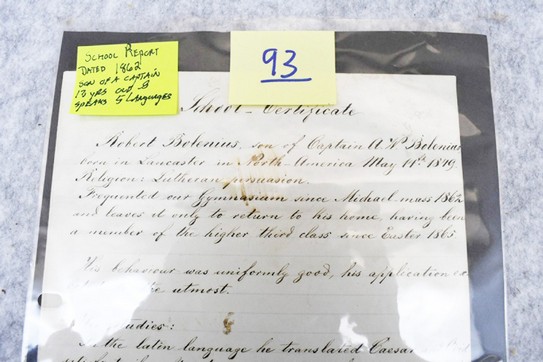 SCHOOL REPORT
DATED 1862
SON OF A CAPTAIN
13 YRS OLD &
SPEAKS 5 LANGUAGES
93
School-Certificate
Robert Bolenius, son of Captain A. W. Bolenius
born in Lancaster in North-America May 11th 1849
Religion: Lutheran persuasion.
Frequented our Gymnasium since Michael mass 1862
and leaves it only to return to his home, having been
a member of the higher third class since Easter 1865
His behaviour was uniformly good, his application
utmost.
In the latin language he translated Caesar